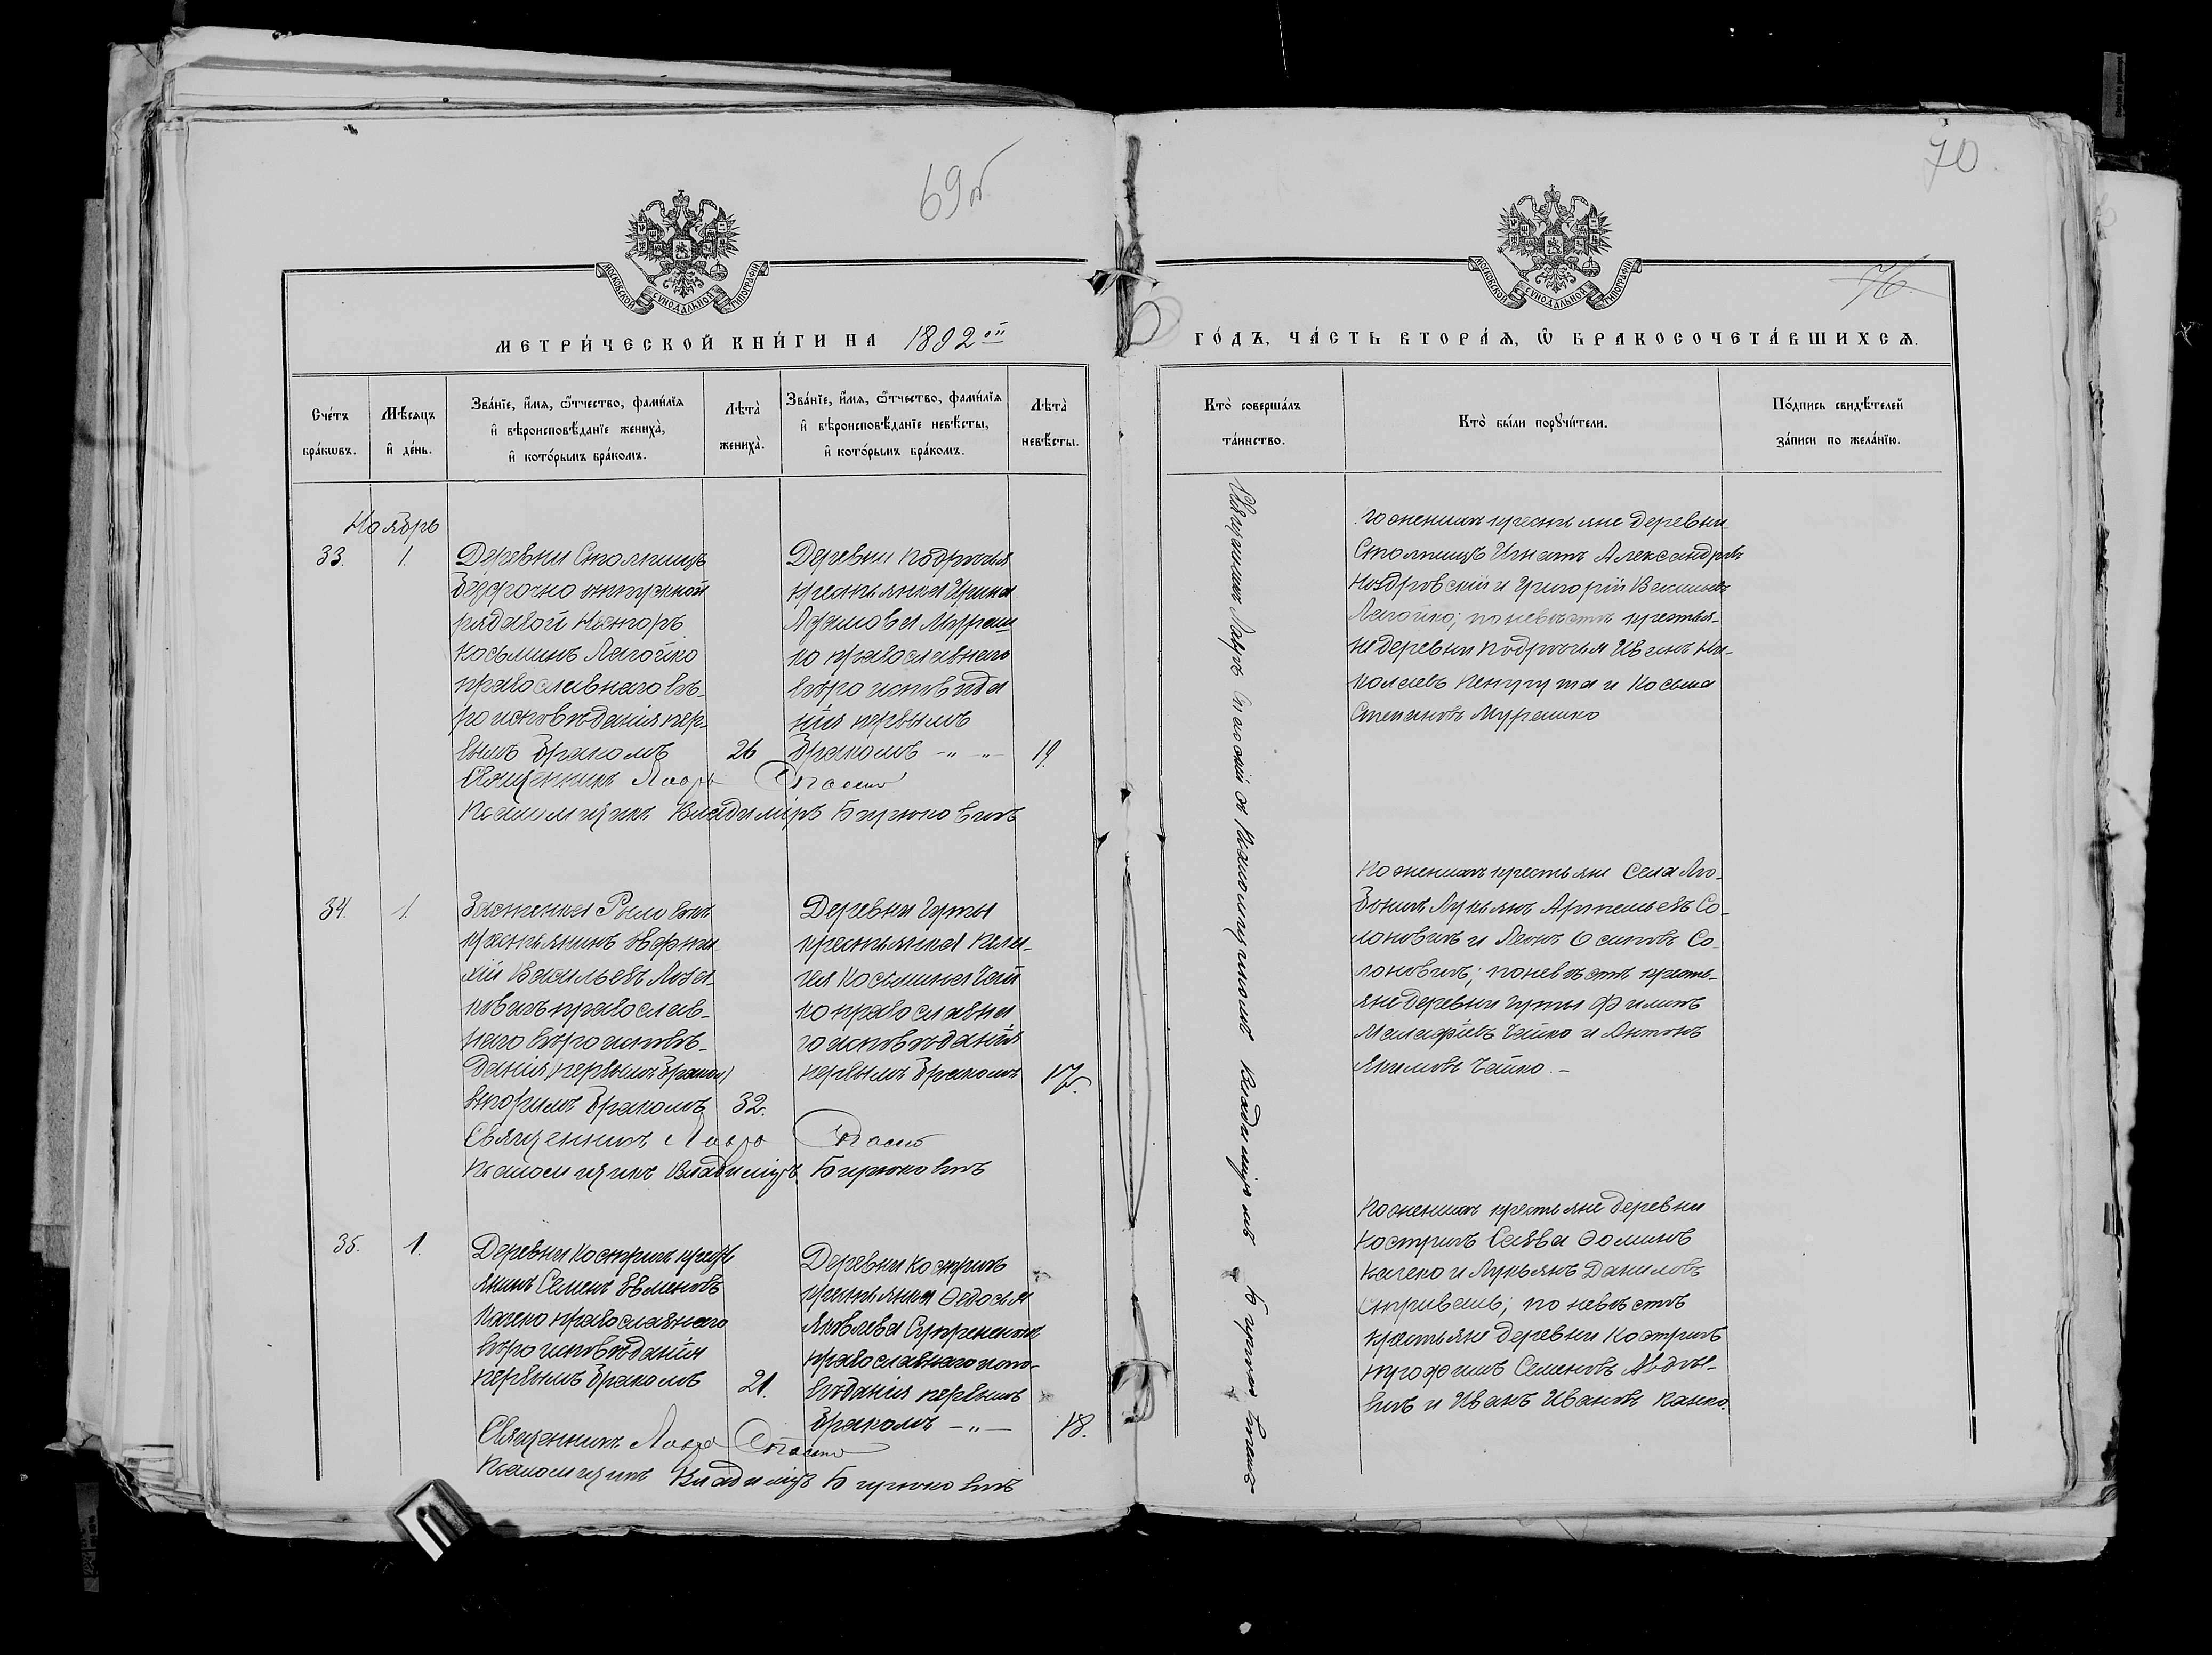 69об
МОСКОВСКОЙ СѴНОДАЛЬНОЙ ТИПОГРАФІИ
МЕТРИ́ЧЕСКОЙ КНИ́ГИ НА 1892ой
Сче́тъ бра́кѡвъ.
Мѣ́сяцъ и҆ де́нь.
Зва́нїе, и҆́мя, ѻ҆́тчество, фами́лїя
и҆ вѣроисповѣ́данїе жениха̀,
и҆ кото́рымъ бра́комъ.
Лѣта̀ жениха̀.
Зва́нїе, и҆́мя, ѻ҆́тчество, фами́лїя
и҆ вѣроисповѣ́данїе невѣ́сты,
и҆ кото́рымъ бра́комъ.
Лѣта̀ невѣ́сты.
Ноябрь
33. 1.
Деревни Столпищъ
безсрочно отпускной
рядовой Никифоръ
Косьминъ Лагойко
православнаго вѣ-
роисповѣданія пер-
вымъ бракомъ 26
Деревни Подрѣчья
крестьянка Ирина
Адамова Мураш
ко православнаго
вѣроисповѣда
нія первымъ
бракомъ -"-"- 19.
Священникъ Лавръ Спасскій
Псаломщикъ Владиміръ Бирюковичъ
34. 1.
Застенка Рыловки
крестьянинъ
Васильевъ
православ-
наго вѣроисповѣ-
данія (первымъ бракомъ)
вторымъ бракомъ 32.
Деревни Гуты
крестьянка
Косьмина Чай
ко православна
го исповѣданія
первымъ бракомъ 17.
Священникъ Лавръ Спасскій
Псаломщикъ Владиміръ Бирюковичъ
35. 1.
Деревни Костричъ кресть
янинъ Семенъ
православнаго
вѣроисповѣданія
первымъ бракомъ 21.
Деревни Костричъ
крестьянка Ѳедосья
Яковлева
православнаго испо-
вѣданія первымъ
бракомъ -"- 18.
Священникъ Лавръ Спасскій
Псаломщикъ Владиміръ Бирюковичъ
70
76.
МОСКОВСКОЙ СѴНОДАЛЬНОЙ ТИПОГРАФІИ
ГО́ДЪ, ЧА́СТЬ ВТОРА́Ѧ, Ѽ БРАКОСОЧЕТА́ВШИХСѦ.
Кто̀ соверша́лъ та́инство.
Кто̀ бы́ли порꙋчи́тели.
По́дпись свидѣ́телей за́писи по жела́нїю.
Священникъ Лавръ Спасскій съ Псаломщикомъ Владиміромъ Бирюковичемъ
По женихѣ крестьяне деревни
Столпищъ Игнатъ Александровъ
Ноздровскій и Григорій
Лагойко; по невѣстѣ крестья-
не деревни Подрѣчья Иванъ Ни-
колаевъ и Косьма
Степановъ Мурашко
По женихѣ крестьяне села Лю-
боничъ Лукьянъ Артемьевъ Со-
лоновичъ и Леонъ Осиповъ Со-
лоновичъ; по невѣстѣ кресть-
яне деревни Гуты Филипъ
Малафѣевъ Чайко и Антонъ
Якимовъ Чайко. -
По женихѣ крестьяне деревни
Костричъ Савва Ѳоминъ
и Лукьянъ Даниловъ
по невѣстѣ
крестьяне деревни Костричъ
Семеновъ
и Иванъ Ивановъ